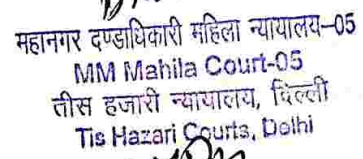 महानगर दण्डाधिकारी महिला न्यायालय–05
MM Mahila Court-05
तीस हजारी न्यायालय, दिल्ली
Tis Hazari Courts, Delhi